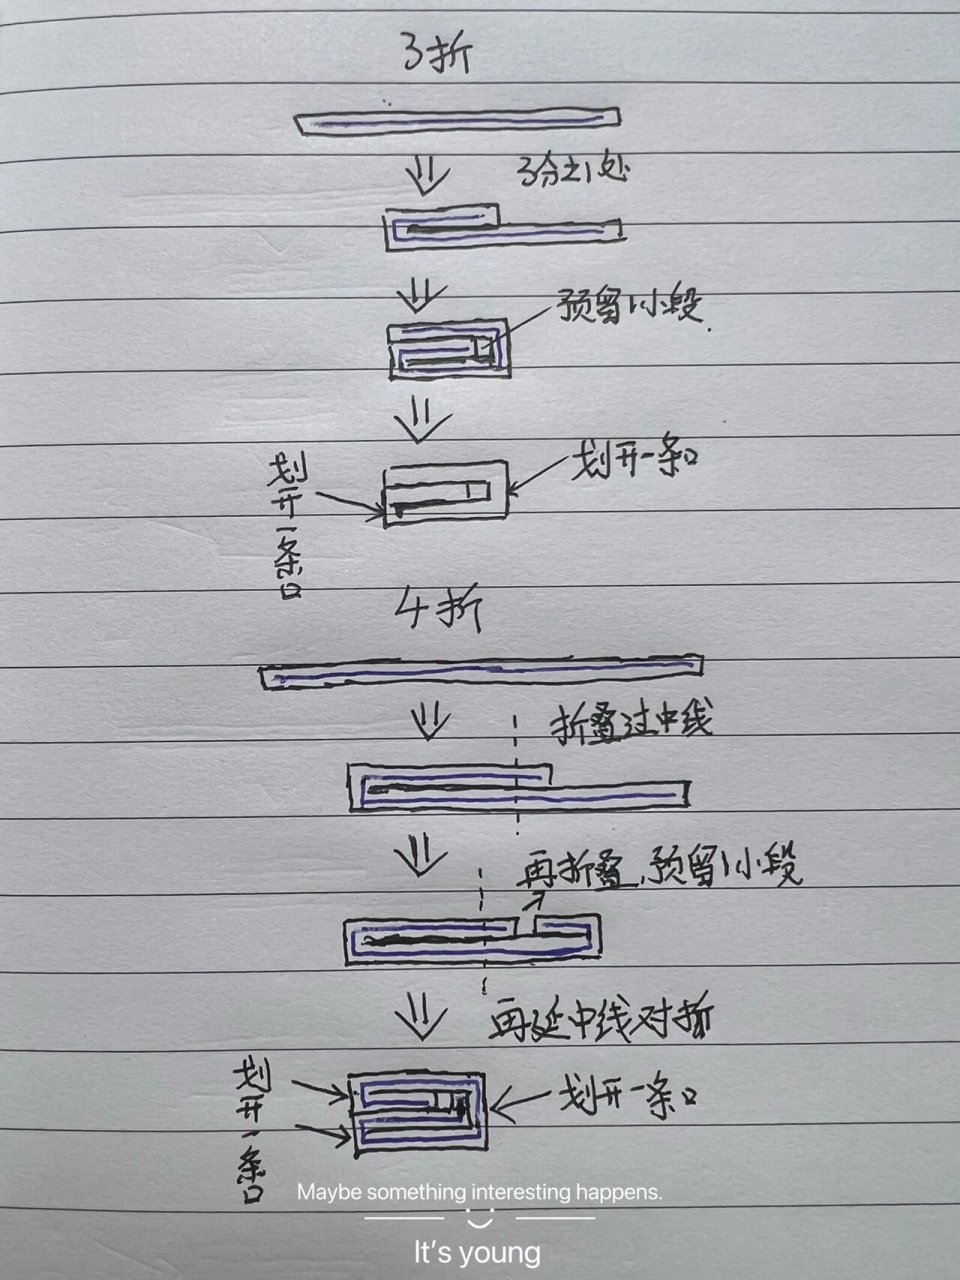 3折
3分之1处
预留1小段.
划开一条口
划开一条口
4折
折叠过中线
再折叠,预留1小段
再延中线对折
划开一条口
划开一条口
Maybe something interesting happens.
It's young